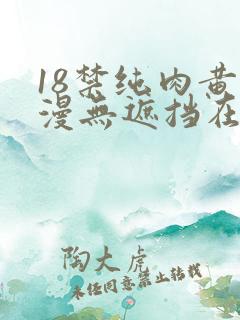 18禁纯肉黄
漫無遮挡在
陶大虎
未经同意禁止转载